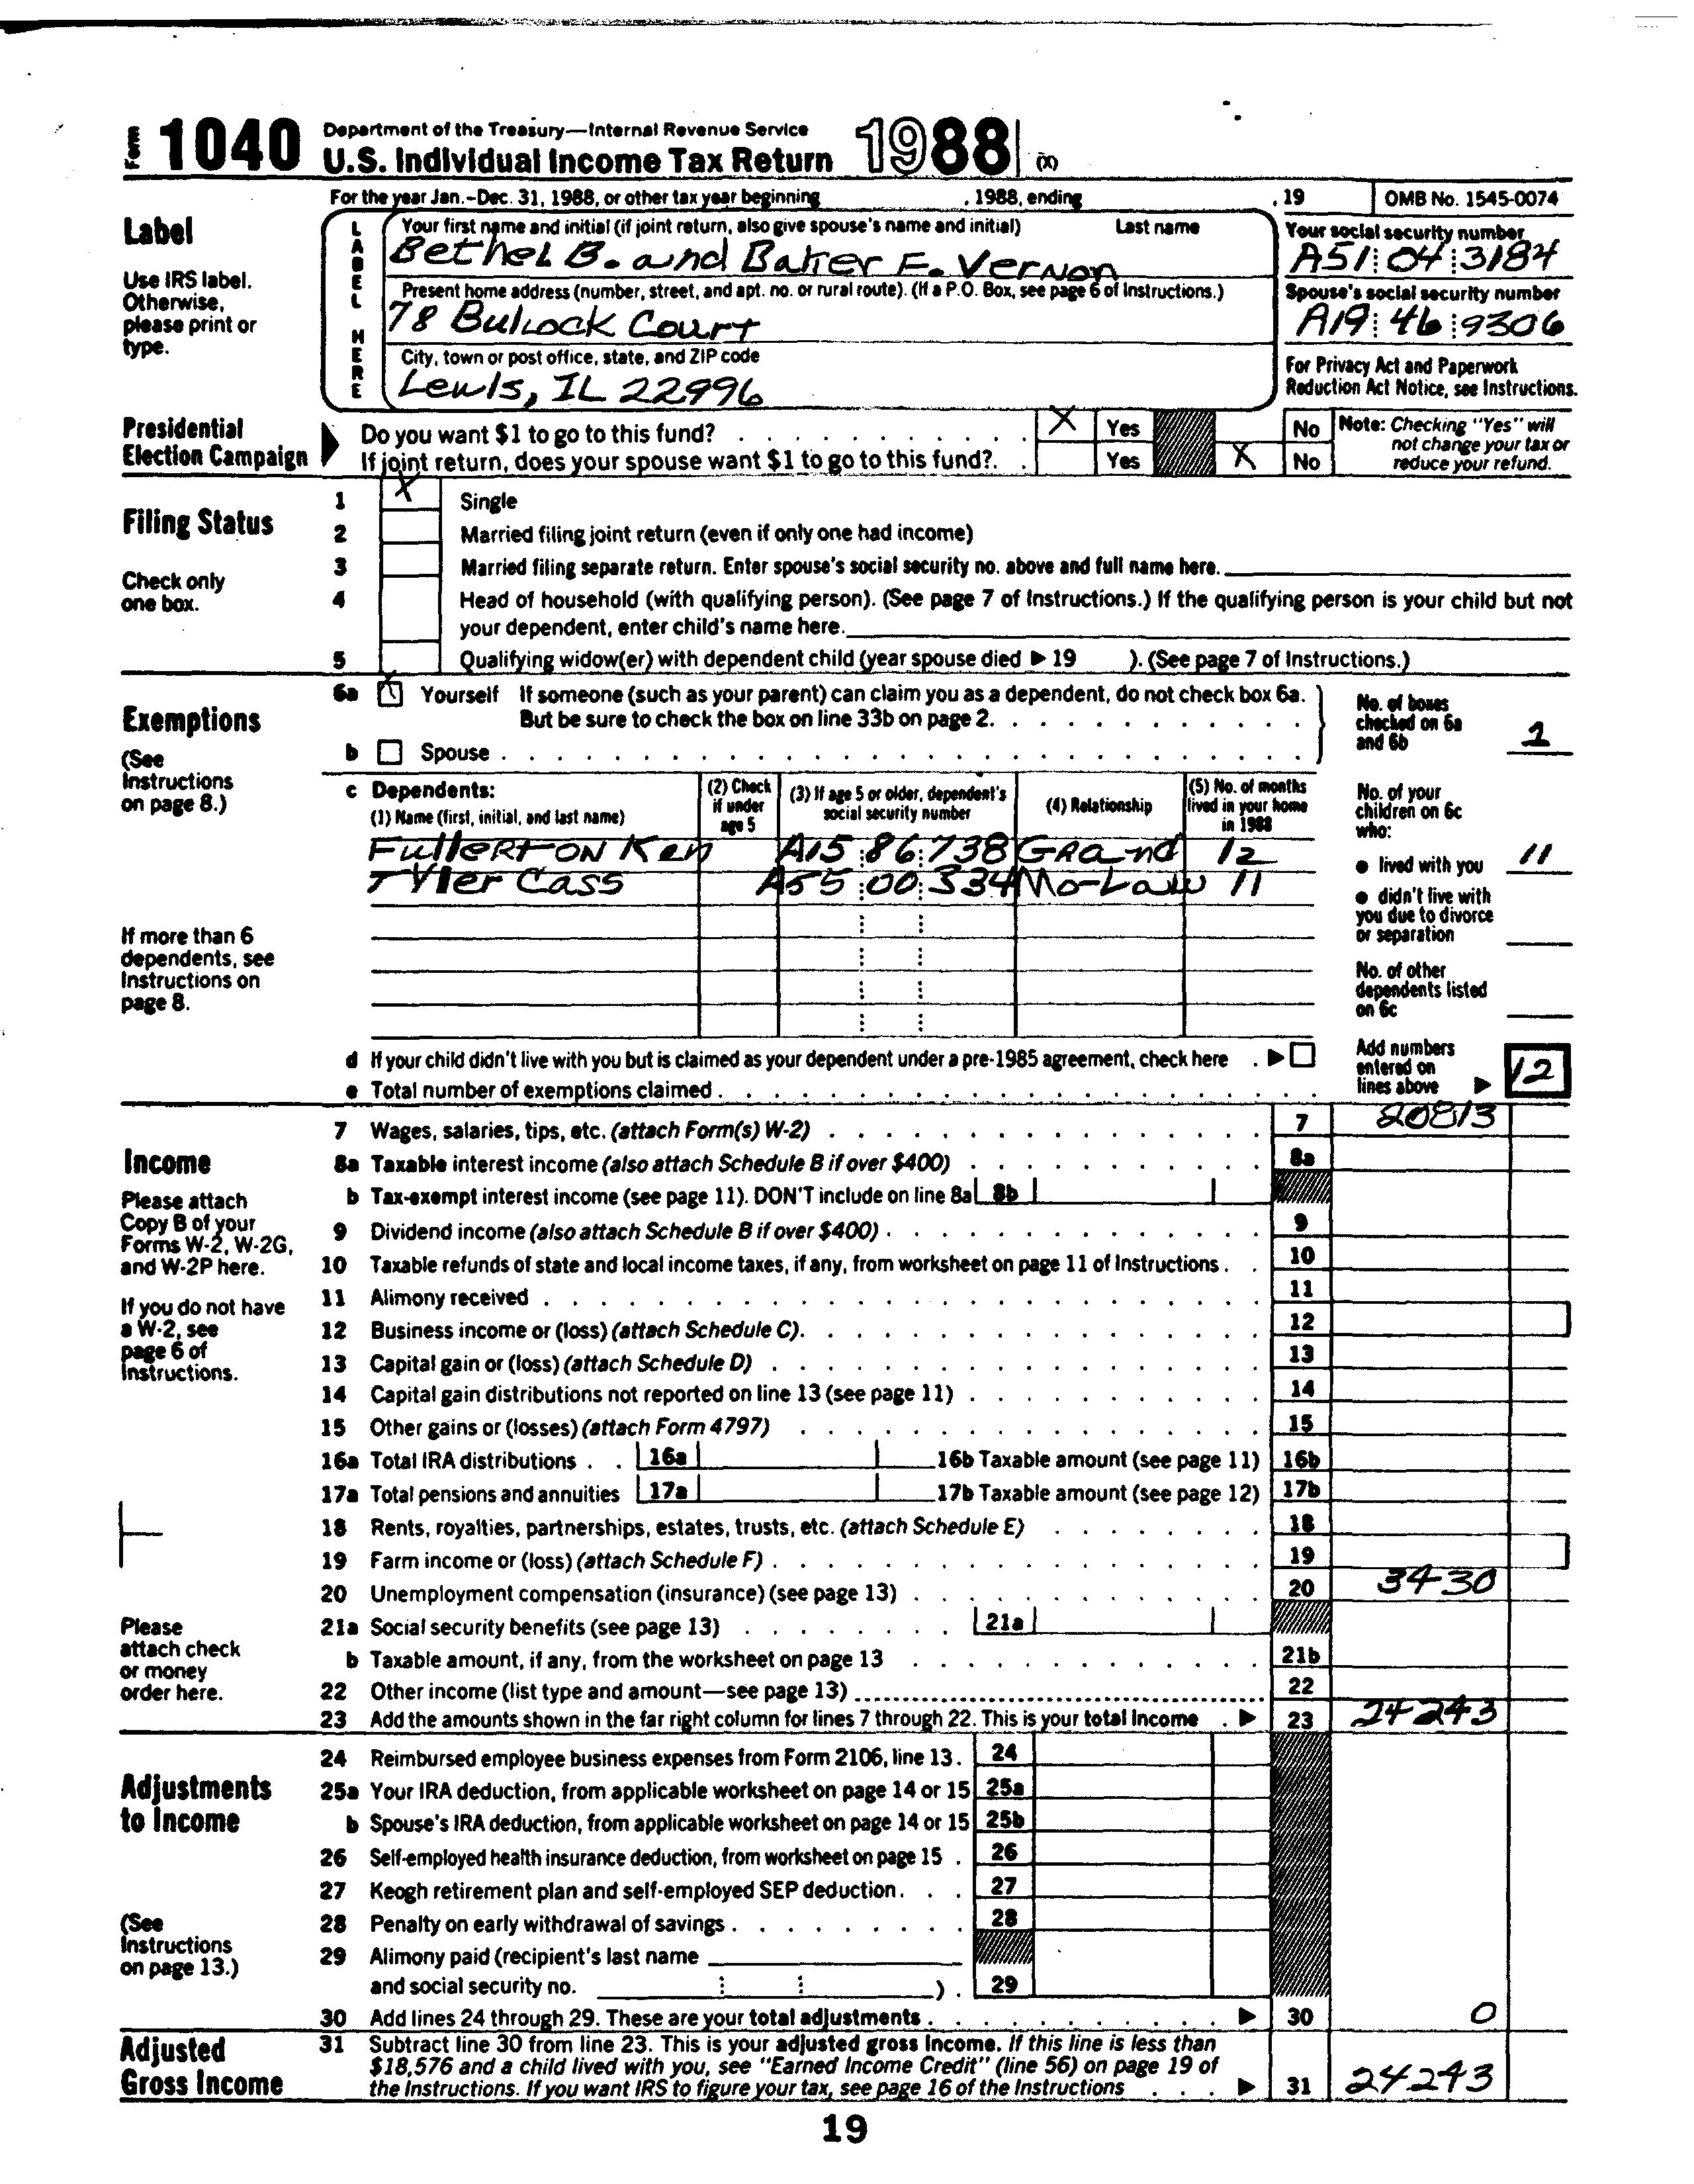 Form 1040 Department of the Treasury—Internal Revenue Service
U.S. Individual Income Tax Return 1988 (X)
For the year Jan.-Dec. 31, 1988, or other tax year beginning , 1988, ending , 19 OMB No. 1545-0074
Label
Use IRS label.
Otherwise,
please print or
type.
LABEL HERE
Your first name and initial (if joint return, also give spouse's name and initial) Last name
Bethel B. and Baker F. Vernon
Your social security number
A51 04 3184
Present home address (number, street, and apt. no. or rural route). (If a P.O. Box, see page 6 of Instructions.)
78 Bullock Court
Spouse's social security number
A19 46 9306
City, town or post office, state, and ZIP code
Lewis, IL 22996
For Privacy Act and Paperwork
Reduction Act Notice, see Instructions.
Presidential
Election Campaign
Do you want $1 to go to this fund? X Yes No
If joint return, does your spouse want $1 to go to this fund?. Yes X No
Note: Checking "Yes" will
not change your tax or
reduce your refund.
Filing Status
Check only
one box.
1 X Single
2 Married filing joint return (even if only one had income)
3 Married filing separate return. Enter spouse's social security no. above and full name here.
4 Head of household (with qualifying person). (See page 7 of Instructions.) If the qualifying person is your child but not
your dependent, enter child's name here.
5 Qualifying widow(er) with dependent child (year spouse died ▶ 19 ). (See page 7 of Instructions.)
Exemptions
(See
Instructions
on page 8.)
6a X Yourself If someone (such as your parent) can claim you as a dependent, do not check box 6a.
But be sure to check the box on line 33b on page 2.
b Spouse
No. of boxes
checked on 6a
and 6b 1
c Dependents:
(1) Name (first, initial, and last name)
(2) Check
if under
age 5
(3) If age 5 or older, dependent's
social security number
(4) Relationship
(5) No. of months
lived in your home
in 1988
Fullerton Ken A15 86 738 Grand 12
Tyler Cass A55 00 334 Mo-Law 11
If more than 6
dependents, see
Instructions on
page 8.
No. of your
children on 6c
who:
● lived with you 11
● didn't live with
you due to divorce
or separation
No. of other
dependents listed
on 6c
d If your child didn't live with you but is claimed as your dependent under a pre-1985 agreement, check here ▶
e Total number of exemptions claimed
Add numbers
entered on
lines above ▶ 12
Income
Please attach
Copy B of your
Forms W-2, W-2G,
and W-2P here.
If you do not have
a W-2, see
page 6 of
Instructions.
7 Wages, salaries, tips, etc. (attach Form(s) W-2) 7 20813
8a Taxable interest income (also attach Schedule B if over $400) 8a
b Tax-exempt interest income (see page 11). DON'T include on line 8a 8b
9 Dividend income (also attach Schedule B if over $400) 9
10 Taxable refunds of state and local income taxes, if any, from worksheet on page 11 of Instructions 10
11 Alimony received 11
12 Business income or (loss) (attach Schedule C). 12
13 Capital gain or (loss) (attach Schedule D) 13
14 Capital gain distributions not reported on line 13 (see page 11) 14
15 Other gains or (losses) (attach Form 4797) 15
16a Total IRA distributions 16a 16b Taxable amount (see page 11) 16b
17a Total pensions and annuities 17a 17b Taxable amount (see page 12) 17b
18 Rents, royalties, partnerships, estates, trusts, etc. (attach Schedule E) 18
19 Farm income or (loss) (attach Schedule F) 19
20 Unemployment compensation (insurance) (see page 13) 20 3430
21a Social security benefits (see page 13) 21a
b Taxable amount, if any, from the worksheet on page 13 21b
22 Other income (list type and amount—see page 13) 22
23 Add the amounts shown in the far right column for lines 7 through 22. This is your total income ▶ 23 24243
Please
attach check
or money
order here.
Adjustments
to Income
(See
Instructions
on page 13.)
24 Reimbursed employee business expenses from Form 2106, line 13. 24
25a Your IRA deduction, from applicable worksheet on page 14 or 15 25a
b Spouse's IRA deduction, from applicable worksheet on page 14 or 15 25b
26 Self-employed health insurance deduction, from worksheet on page 15 26
27 Keogh retirement plan and self-employed SEP deduction 27
28 Penalty on early withdrawal of savings 28
29 Alimony paid (recipient's last name
and social security no. ) 29
30 Add lines 24 through 29. These are your total adjustments ▶ 30 0
Adjusted
Gross Income
31 Subtract line 30 from line 23. This is your adjusted gross income. If this line is less than
$18,576 and a child lived with you, see "Earned Income Credit" (line 56) on page 19 of
the Instructions. If you want IRS to figure your tax, see page 16 of the Instructions ▶ 31 24243
19